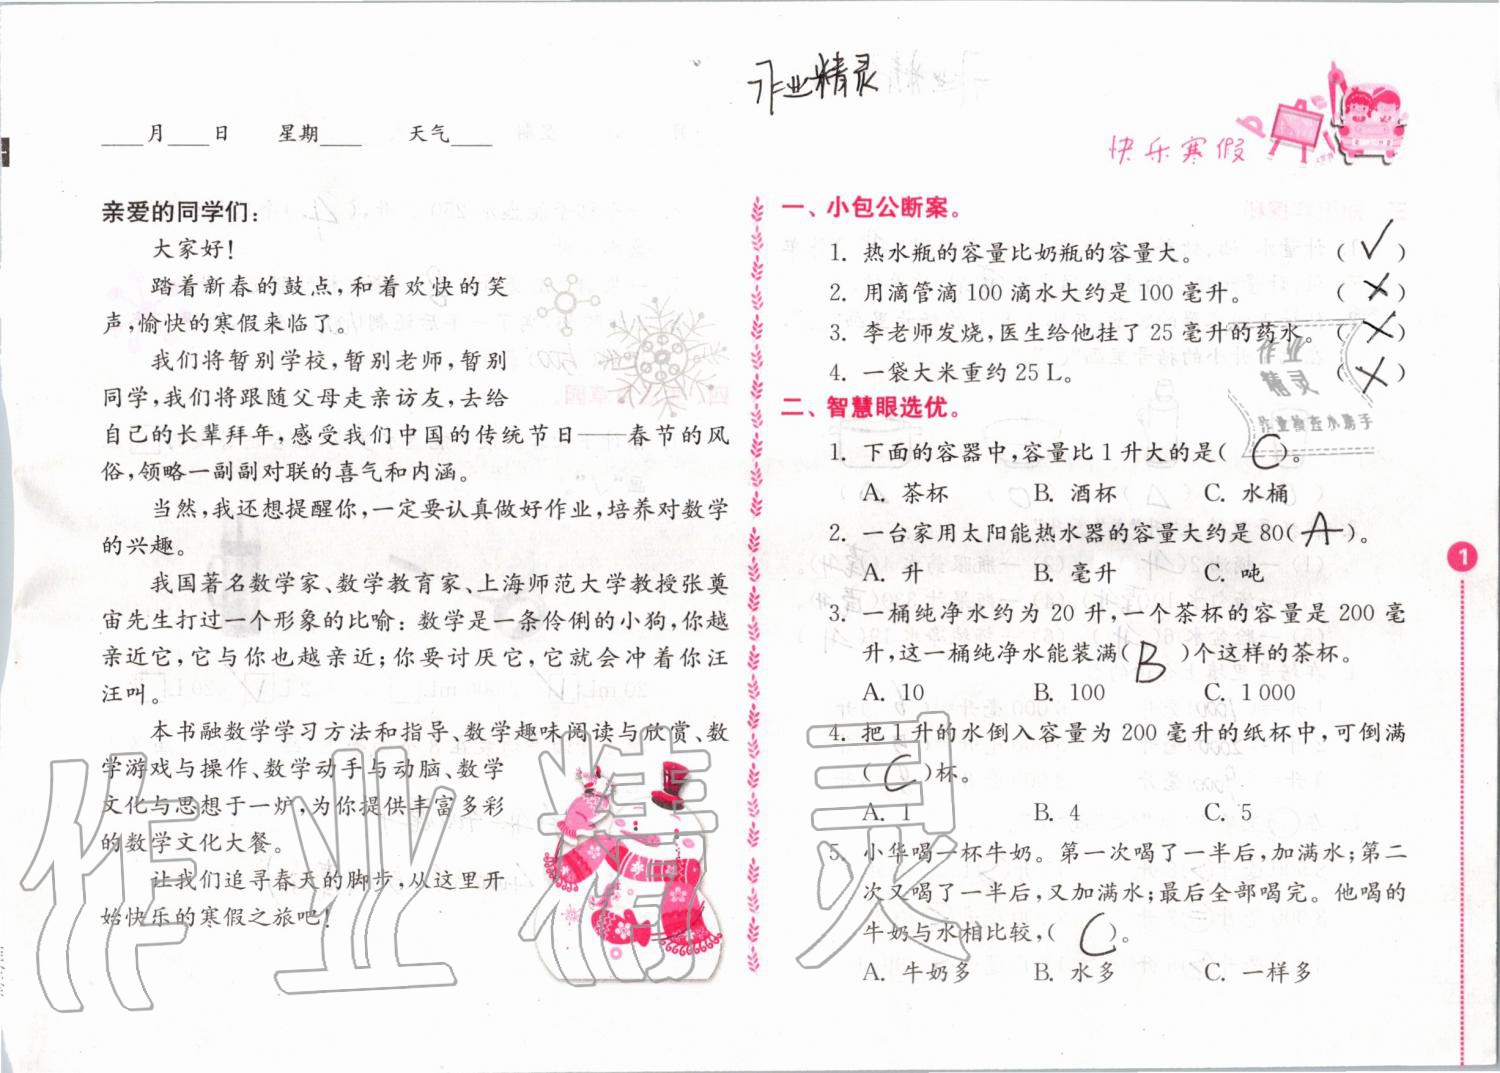 作业精灵
____月____日 星期____ 天气____
快乐寒假
亲爱的同学们：
大家好！
踏着新春的鼓点，和着欢快的笑
声，愉快的寒假来临了。
我们将暂别学校，暂别老师，暂别
同学，我们将跟随父母走亲访友，去给
自己的长辈拜年，感受我们中国的传统节日——春节的风
俗，领略一副副对联的喜气和内涵。
当然，我还想提醒你，一定要认真做好作业，培养对数学
的兴趣。
我国著名数学家、数学教育家、上海师范大学教授张奠
宙先生打过一个形象的比喻：数学是一条伶俐的小狗，你越
亲近它，它与你也越亲近；你要讨厌它，它就会冲着你汪
汪叫。
本书融数学学习方法和指导、数学趣味阅读与欣赏、数
学游戏与操作、数学动手与动脑、数学
文化与思想于一炉，为你提供丰富多彩
的数学文化大餐。
让我们追寻春天的脚步，从这里开
始快乐的寒假之旅吧！
一、小包公断案。
1. 热水瓶的容量比奶瓶的容量大。 （✓）
2. 用滴管滴100滴水大约是100毫升。 （×）
3. 李老师发烧，医生给他挂了25毫升的药水。（×）
4. 一袋大米重约25 L。 （×）
二、智慧眼选优。
1. 下面的容器中，容量比1升大的是（ C ）。
A. 茶杯 B. 酒杯 C. 水桶
2. 一台家用太阳能热水器的容量大约是80（ A ）。
A. 升 B. 毫升 C. 吨
3. 一桶纯净水约为20升，一个茶杯的容量是200毫
升，这一桶纯净水能装满（ B ）个这样的茶杯。
A. 10 B. 100 C. 1 000
4. 把1升的水倒入容量为200毫升的纸杯中，可倒满
（ C ）杯。
A. 1 B. 4 C. 5
5. 小华喝一杯牛奶。第一次喝了一半后，加满水；第二
次又喝了一半后，又加满水；最后全部喝完。他喝的
牛奶与水相比较，（ C ）。
A. 牛奶多 B. 水多 C. 一样多
1
作业
精灵
作业检查小助手
作业精灵